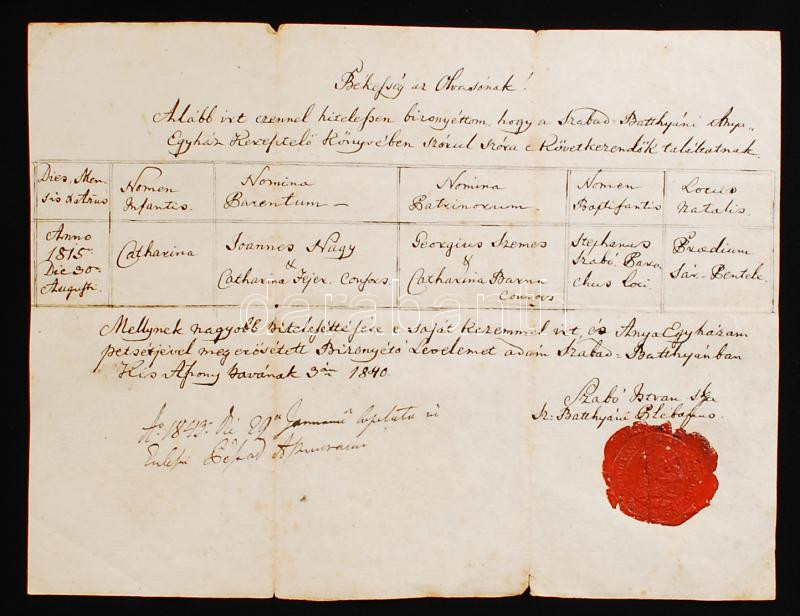 Békesség az Olvasónak!
Alább irt ezennel hitelessen bizonyéttom, hogy a Szabad-Batthyáni Anya-
Egyház Keresztelő Könyvében szórul szóra e következendők találtatnak.
Dies, Men-
sis et Annus
Nomen
Infantis.
Nomina
Parentum —
Nomina
Patrinorum
Nomen
Baptisantis
Locus
natalis.
Anno
1815
Die 30a
Augusti.
Catharina
Joannes Nagy
&
Catharina Fejer. Consors.
Georgius Szemes
&
Catharina Barna
Consors
Stephanus
Szabó Paro
chus loci.
Prædium
Sár-Pentele.
Mellynek nagyobb hitelesíttésére e saját kezemmel irt és Anya Egyházam
petsétjével megerősétett Bizonyétó Levelemet adám Szabad-Batthyánban
Kis Aszony havának 3án 1840.
Szabó Istvan
Sz. Batthyáni Plébánus.
Ao 1843 29a Januarii
darabanth